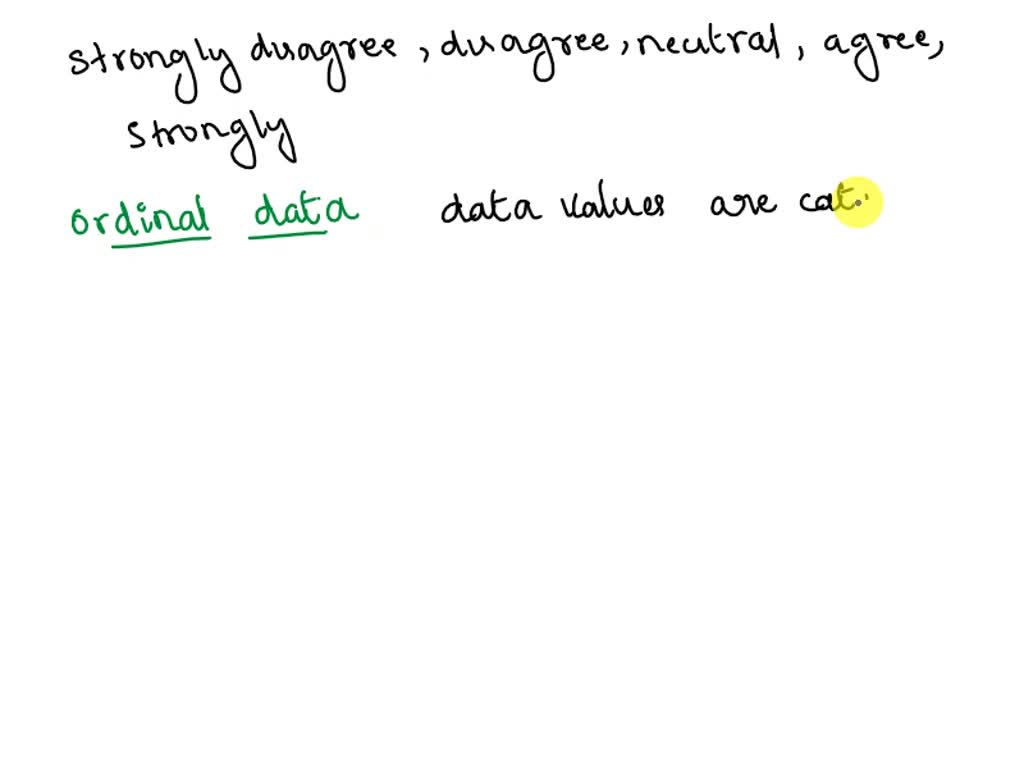 strongly disagree, disagree, neutral, agree,
strongly
ordinal data data values are cat.